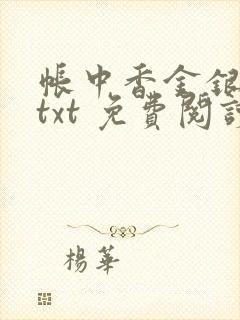 帳中香金銀
txt 免費閱讀
楊華